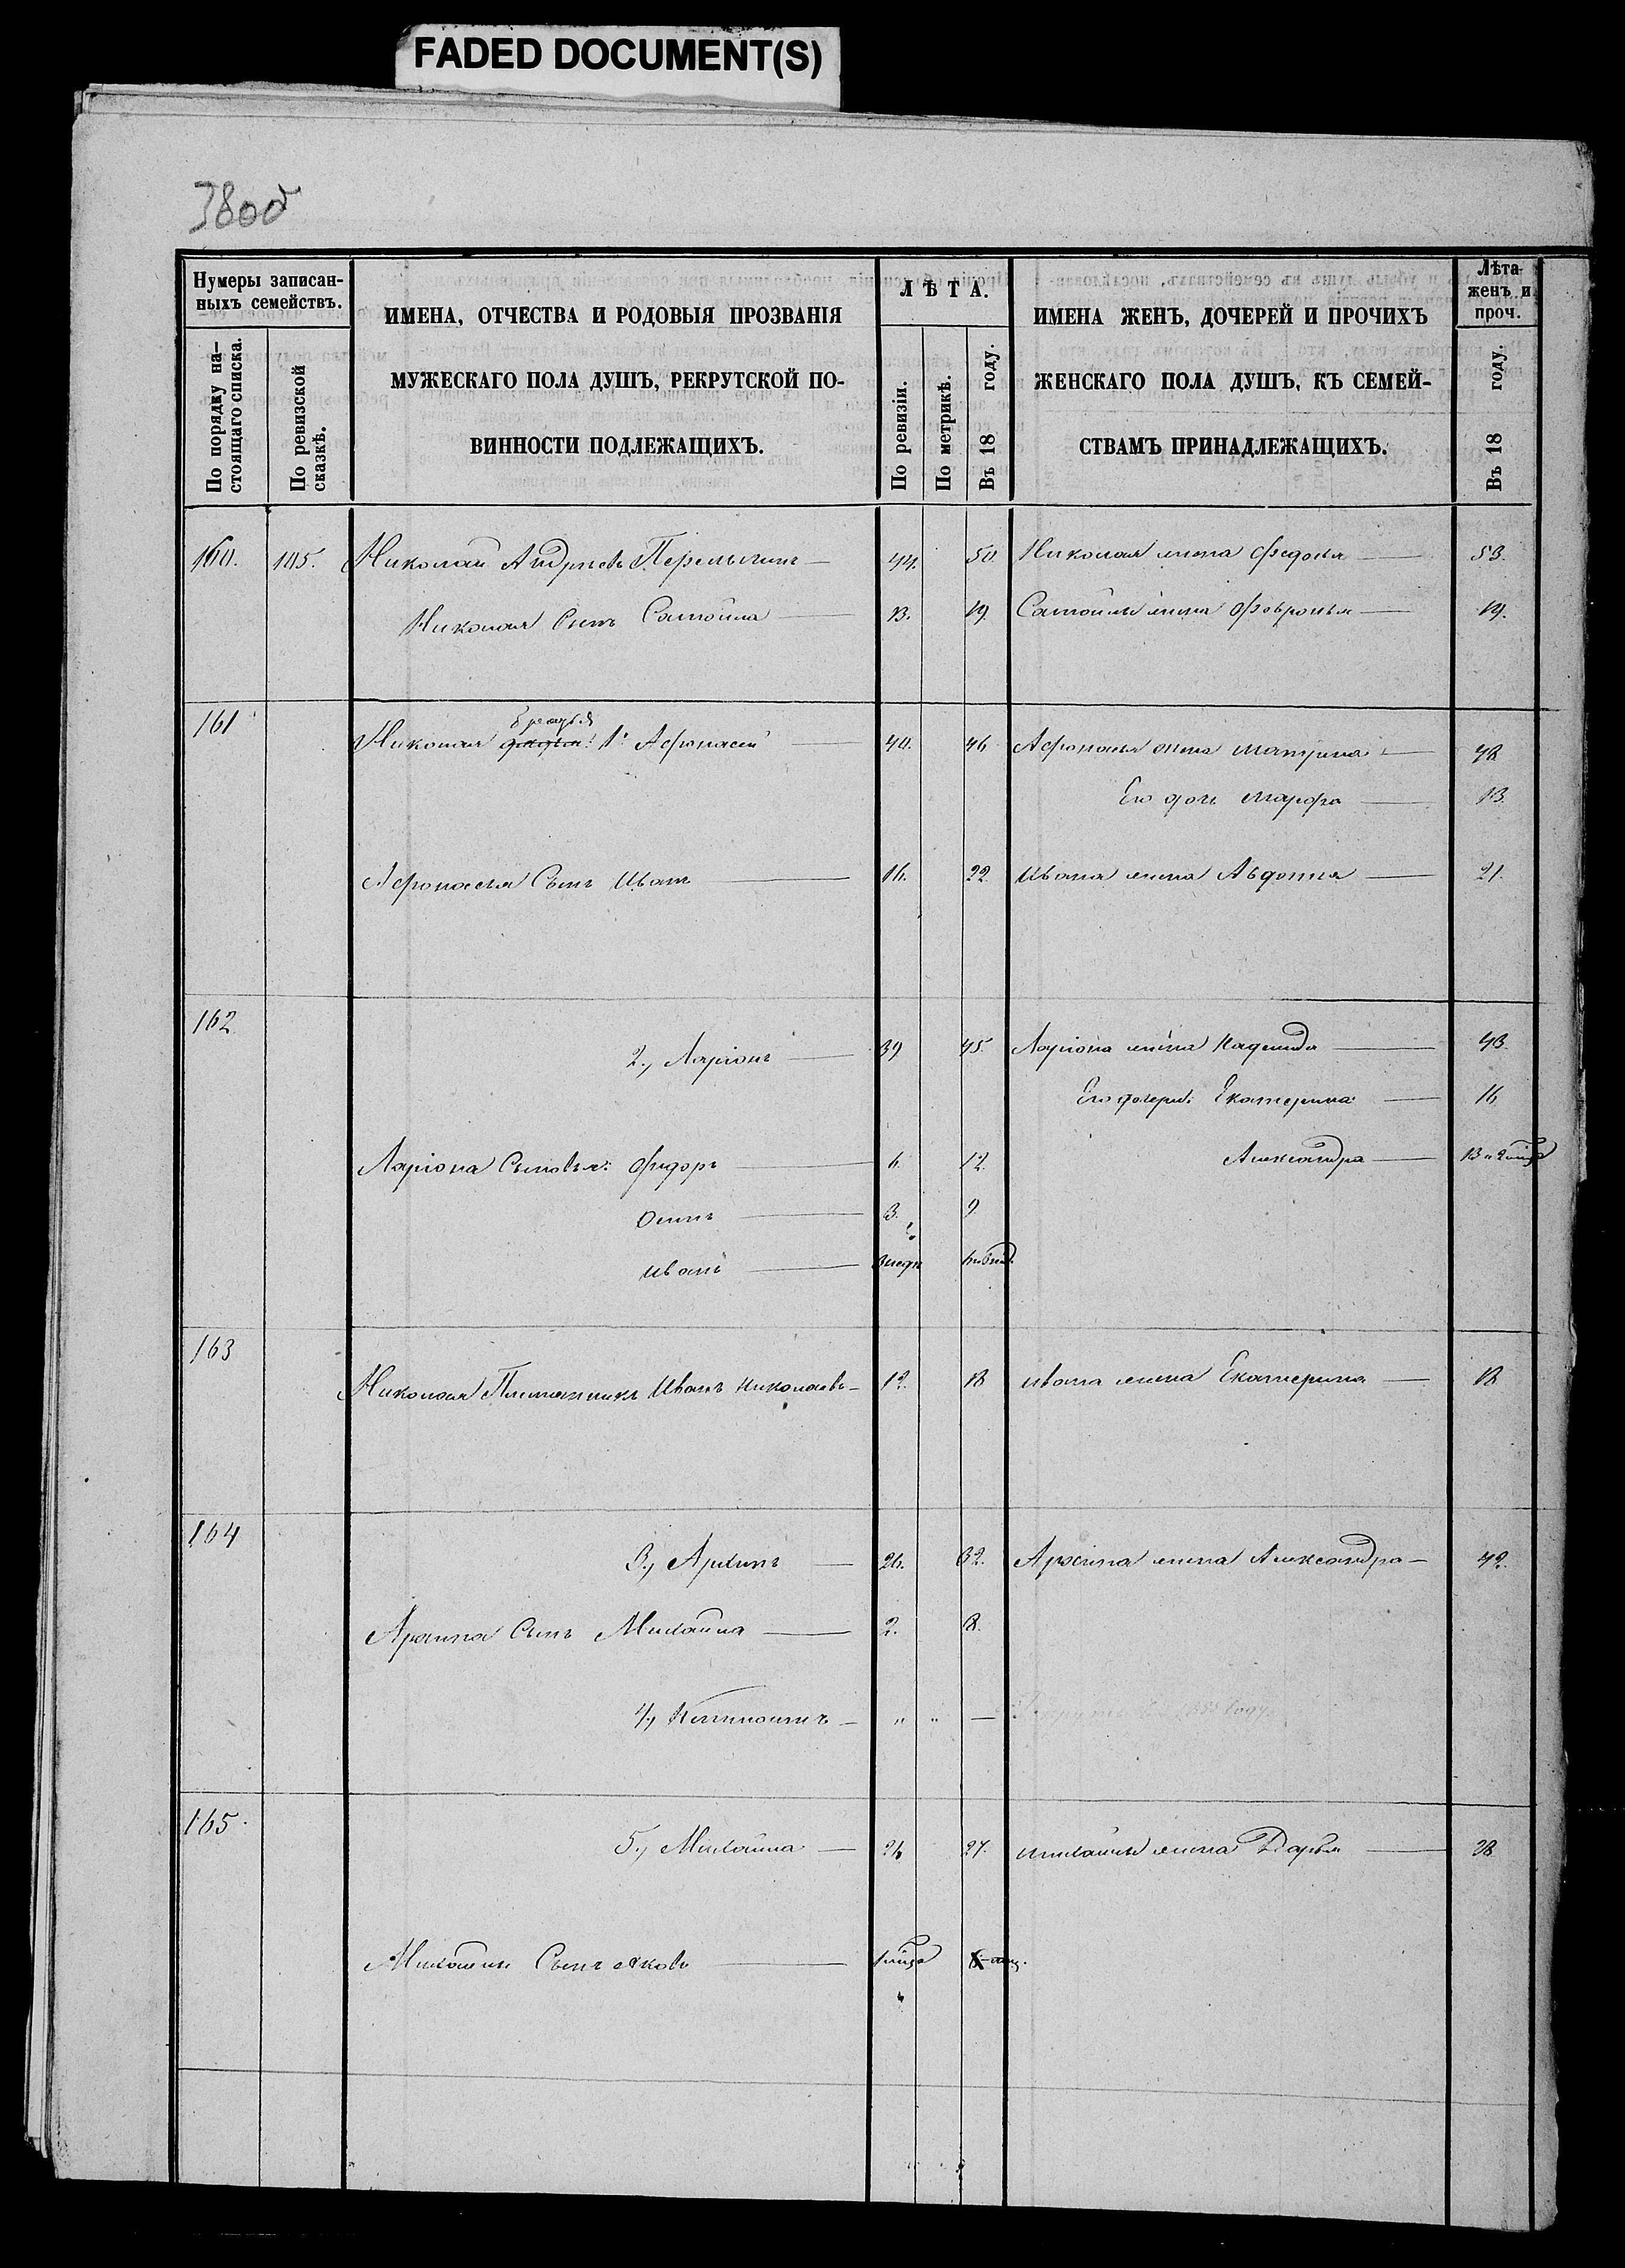 FADED DOCUMENT(S)
38об
Нумеры записан-
ныхъ семействъ.
По порядку на-
стоящаго списка.
По ревизской
сказкѣ.
ИМЕНА, ОТЧЕСТВА И РОДОВЫЯ ПРОЗВАНІЯ
МУЖЕСКАГО ПОЛА ДУШЪ, РЕКРУТСКОЙ ПО-
ВИННОСТИ ПОДЛЕЖАЩИХЪ.
Л Ѣ Т А.
По ревизіи.
По метрикѣ.
Въ 18 году.
ИМЕНА ЖЕНЪ, ДОЧЕРЕЙ И ПРОЧИХЪ
ЖЕНСКАГО ПОЛА ДУШЪ, КЪ СЕМЕЙ-
СТВАМЪ ПРИНАДЛЕЖАЩИХЪ.
Лѣта
женъ и
проч.
Въ 18 году.
160. 105. Николай Андреевъ 44. 50. Николая жена Федосья 53.
Николая Сынъ Самойла 13. 19. Самойлы жена Февронья 19.
161 Николая братья 1. Афонасей 40. 46 Афонасья жена Матрена 48
Его дочь Марфа 13.
Афонасья Сынъ Иванъ 16. 22. Ивана жена Авдотья 21.
162 2., Ларіонъ 39 45. Ларіона жена Надежда 43.
Его дочери: Екатерина 16
Ларіона Сыновья: Федоръ 6. 12. Александра
Осипъ 3. 9.
Иванъ
163 Николая Племянникъ Иванъ Николаевъ 12. 18 Ивана жена Екатерина 18
164 3., Архипъ 26. 32. Архипа жена Александра 42.
Архипа Сынъ Михайла 2. 8.
4., " "
165. 5., Михайла 27. Михайлы жена Дарья 28
Михайлы Сынъ Яковъ